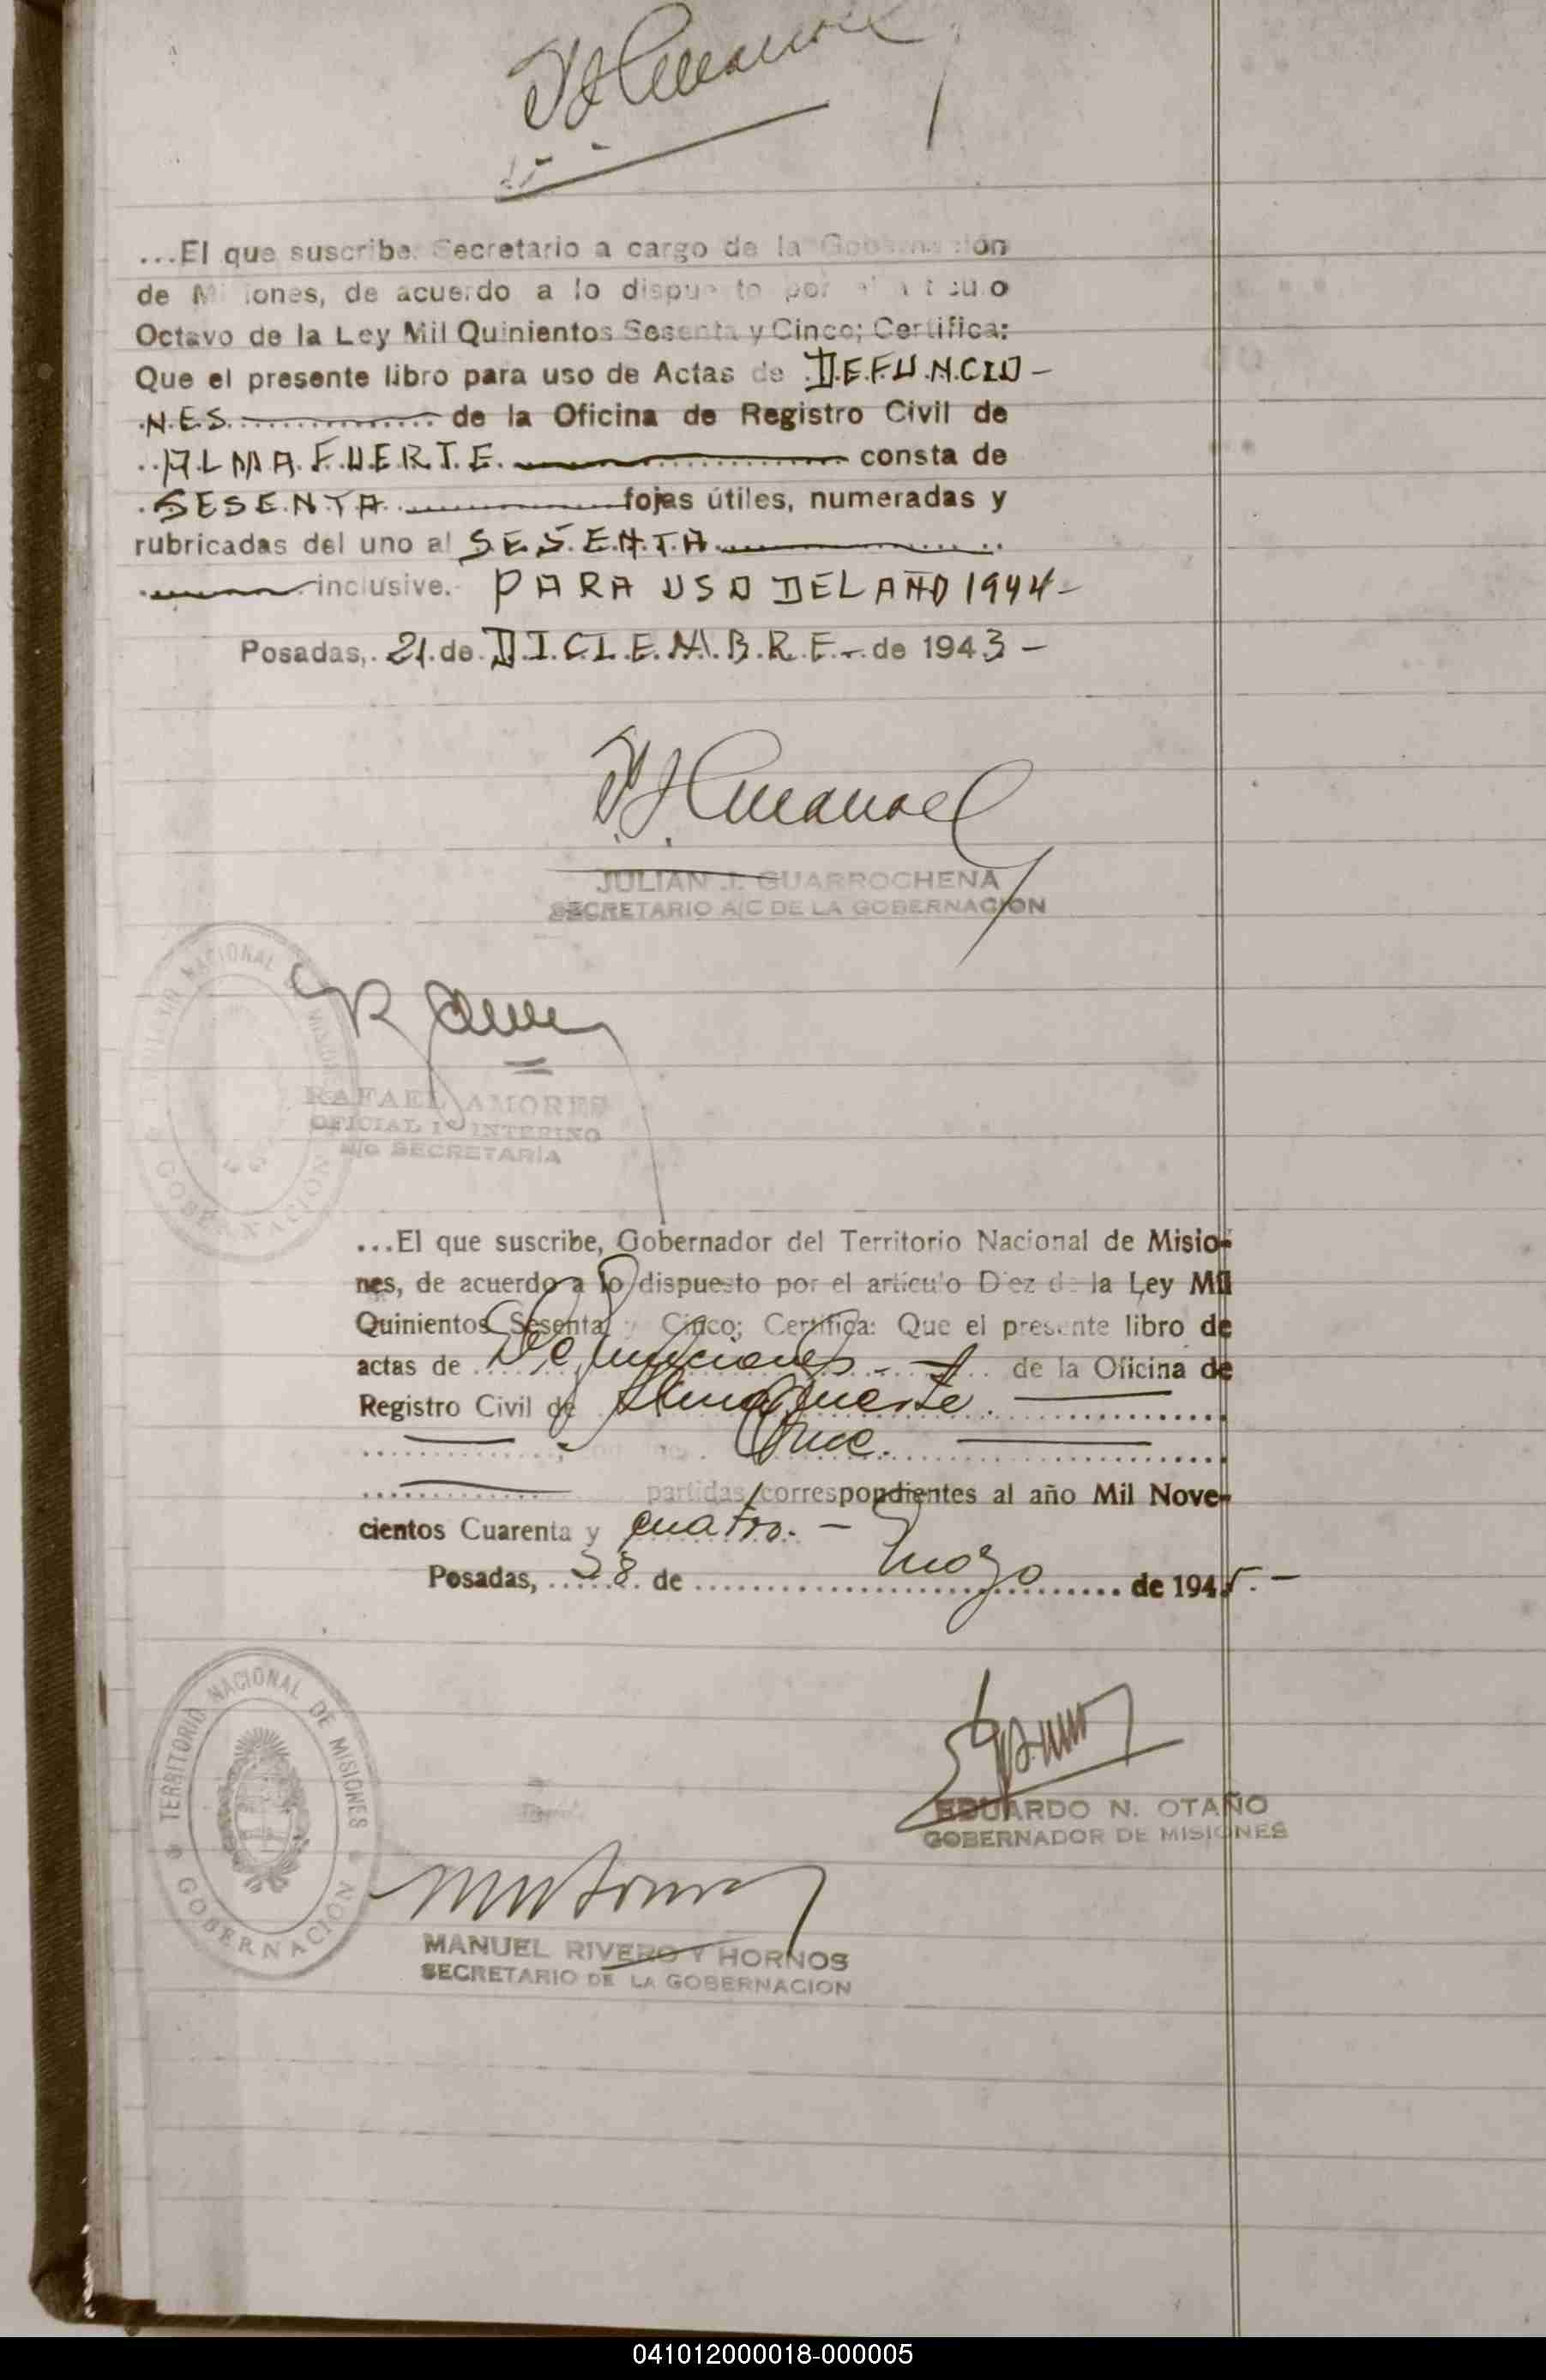 ...El que suscribe, Secretario a cargo de la Gobernación
de Misiones, de acuerdo a lo dispuesto por el artículo
Octavo de la Ley Mil Quinientos Sesenta y Cinco; Certifica:
Que el presente libro para uso de Actas de DEFUNCIO-
NES de la Oficina de Registro Civil de
ALMAFUERTE consta de
SESENTA fojas útiles, numeradas y
rubricadas del uno al SESENTA
inclusive.- PARA USO DEL AÑO 1944-
Posadas, 21 de DICIEMBRE.- de 1943-
JULIAN J. GUARROCHENA
SECRETARIO A/C DE LA GOBERNACION
TERRITORIO NACIONAL DE MISIONES
GOBERNACION
RAFAEL AMORES
OFICIAL 1º INTERINO
A/C SECRETARIA
...El que suscribe, Gobernador del Territorio Nacional de Misio-
nes, de acuerdo a lo dispuesto por el artículo Diez de la Ley Mil
Quinientos Sesenta y Cinco; Certifica: Que el presente libro de
actas de Defunciones.- de la Oficina de
Registro Civil de Almafuerte.
Once.
partidas correspondientes al año Mil Nove-
cientos Cuarenta y cuatro.-
Posadas, 28 de Mayo de 1945.-
TERRITORIO NACIONAL DE MISIONES
GOBERNACION
EDUARDO N. OTAÑO
GOBERNADOR DE MISIONES
MANUEL RIVERO Y HORNOS
SECRETARIO DE LA GOBERNACION
041012000018-000005